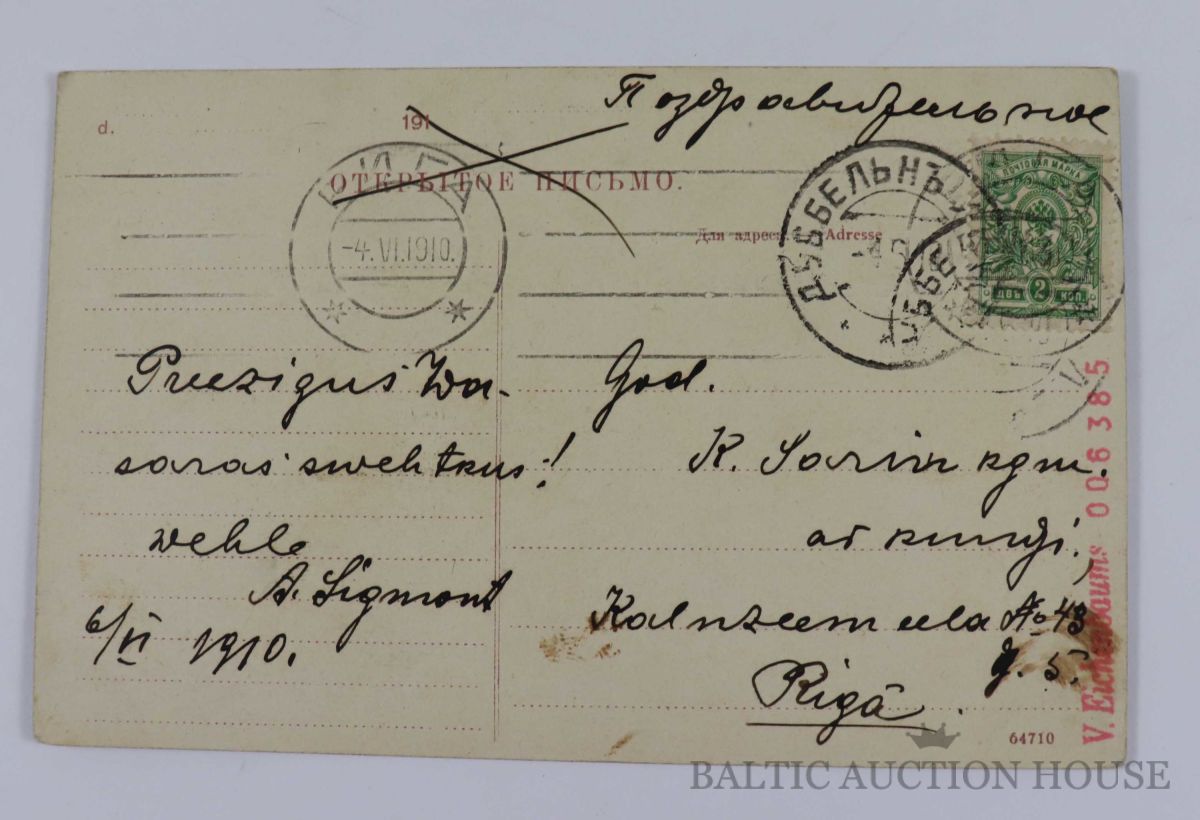 Поздравительное
d. 191
ОТКРЫТОЕ ПИСЬМО.
Для адреса. Adresse
РИГА
-4.VI.1910.
ДУББЕЛЬНЪ
ПОЧТОВАЯ МАРКА
ДВѢ 2 КОП.
Preezigus Wa-
saras swehtkus!
wehle
A. Sigmont
6/VI 1910.
God.
K. Sarin kgm.
ar kundzi.
Kalnzeem eela No 43
dz. 5.
Rigâ.
V. Eichenbaums 006385
64710
BALTIC AUCTION HOUSE